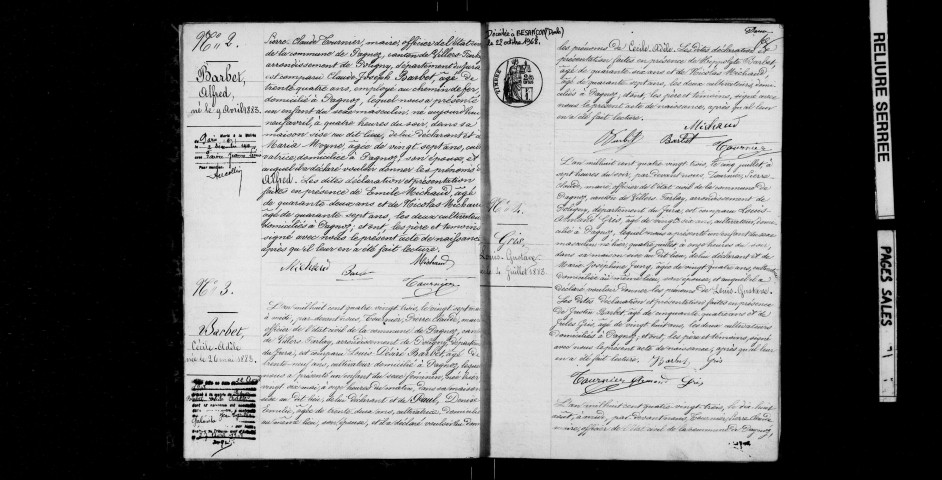 N° 2.
Barbet,
Alfred,
né le 9 Avril 1883.
Pierre-Claude Tournier, maire, officier de l'état civil
de la commune de Pagnoz, canton de Villers Farlay
arrondissement de Poligny, département du Jura
est comparu Claude Joseph Barbet, âgé de
trente quatre ans, employé au chemin de fer,
domicilié à Pagnoz, lequel nous a présenté
un enfant du sexe masculin, né aujourd'hui
neuf avril, à quatre heures du soir, dans sa
maison sise au dit lieu, de lui déclarant et de
Maria Moyne, âgée de vingt sept ans, cul
tivatrice, domiciliée à Pagnoz, son épouse, et
auquel il a déclaré vouloir donner les prénoms d'
Alfred. Les dites déclaration et présentation
faites en présence de Emile Michaud, âgé
de quarante deux ans et de Nicolas Michaud
âgé de quarante sept ans, les deux cultivateurs
domiciliés à Pagnoz; et ont, les père et témoins
signé avec nous le présent acte de naissance
après qu'il leur en a été fait lecture.
Michaud Barbet Michaud
Tournier
N° 3.
Barbet,
Cécile-Adèle
née le 26 mai 1883.
L'an mil huit cent quatre vingt trois, le vingt sept mai
à midi, par devant nous, Tournier, Pierre Claude, maire
officier de l'état civil de la commune de Pagnoz, canton
de Villers Farlay, arrondissement de Poligny, département
du Jura, est comparu Louis Désiré Barbet, âgé de
trente neuf ans, cultivateur domicilié à Pagnoz, lequel
nous a présenté un enfant du sexe féminin, née hier
vingt six mai, à onze heures du matin, dans sa maison
sise au dit lieu, de lui déclarant et de
Emélie, âgée de trente deux ans, cultivatrice, domiciliée
au même lieu, son épouse, et il a déclaré vouloir lui donner
Décédée à BESANÇON (Doubs)
le 22 octobre 1968.
TIMBRE
les prénoms de Cécile Adèle. Les dites déclaration et
présentation faites en présence de Hippolyte Barbet,
âgé de quarante six ans et de Nicolas Michaud,
âgé de quarante sept ans, les deux cultivateurs domi
ciliés à Pagnoz, dont, les père et témoins, signé avec
nous le présent acte de naissance, après qu'il leur
en a été fait lecture.
Michaud
Barbet Barbet Tournier
N° 4.
Gris,
Louis-Gustave
né le 4 Juillet 1883.
L'an mil huit cent quatre vingt trois, le cinq juillet, à
sept heures du soir, par devant nous, Tournier, Pierre-
Claude, maire officier de l'état civil de la commune de
Pagnoz, canton de Villers Farlay, arrondissement de
Poligny, département du Jura, est comparu Louis
Gris, âgé de vingt six ans, cultivateur, domi
cilié à Pagnoz, lequel nous a présenté un enfant du sexe
masculin, né hier, quatre juillet à onze heures du soir,
dans sa maison sise au dit lieu, de lui déclarant et de
Marie Joséphine Jung, âgée de vingt quatre ans, cultivatrice
domiciliée au même lieu, son épouse, et auquel il a
déclaré vouloir donner les prénoms de Louis-Gustave.
Les dites déclaration et présentation faites en présence
de Justin Barbet, âgé de cinquante quatre ans et de
Jules Gris, âgé de vingt huit ans, les deux cultivateurs
domiciliés à Pagnoz, et ont, les père et témoins, signé
avec nous le présent acte de naissance, après qu'il leur
en a été fait lecture. Barbet Gris
Tournier Gris
L'an mil huit cent quatre vingt trois, le dix huit
août, à midi, par devant nous, Tournier, Pierre Claude
maire, officier de l'état civil de la commune de Pagnoz,
RELIURE SERREE
PAGES SALES